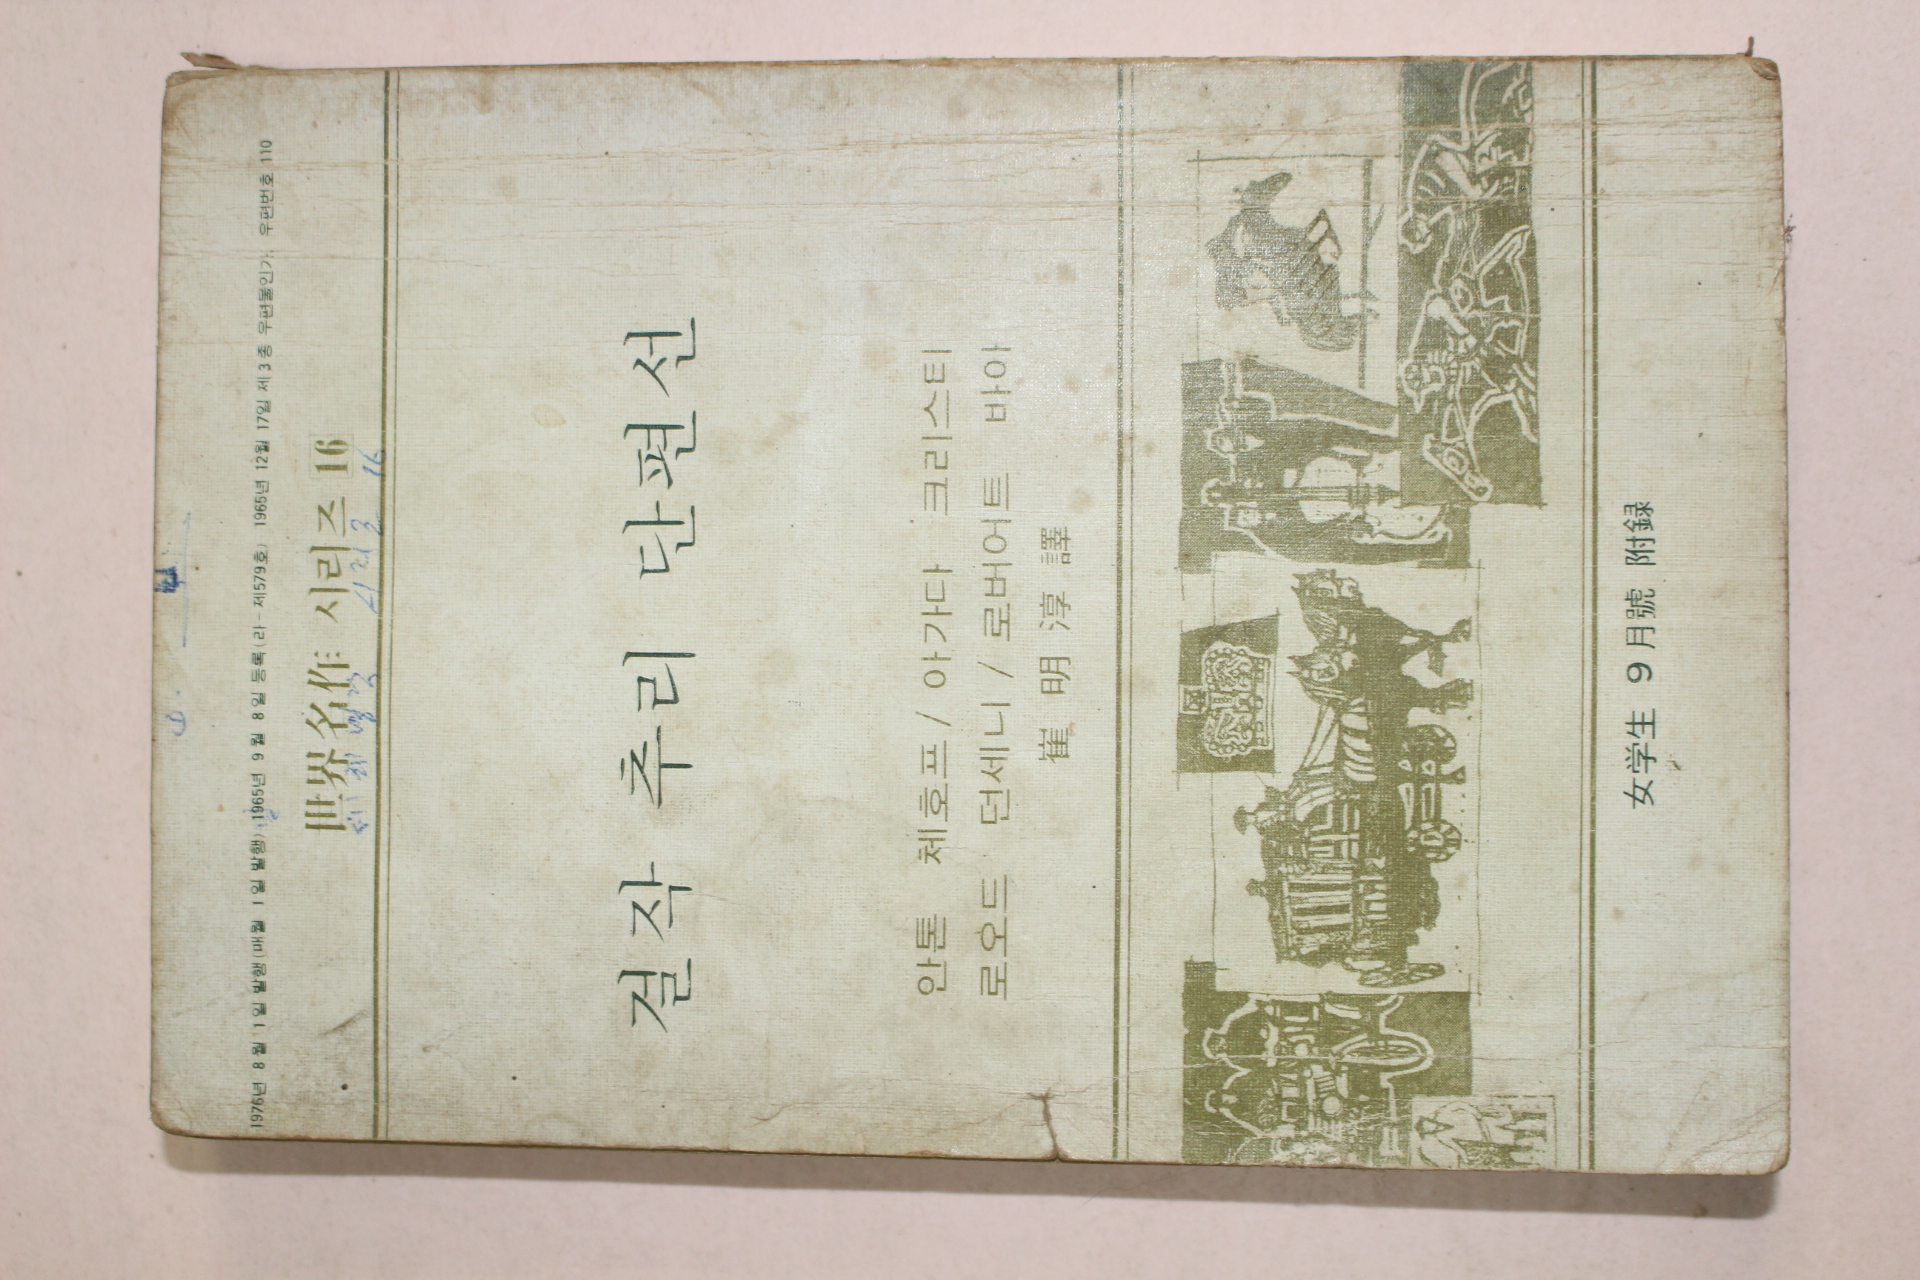 1976년 8월 1일 발행(매월 1일 발행) 1965년 9월 8일 등록(라-제579호) 1965년 12월 17일 제3종 우편물인가. 우편번호 110
世界名作 시리즈 16
세계명작 시리즈 16
걸작 추리 단편선
안톤 체호프/아가다 크리스티
로오드 던세니/로버어트 바아
崔明淳 譯
女学生 9月號 附録